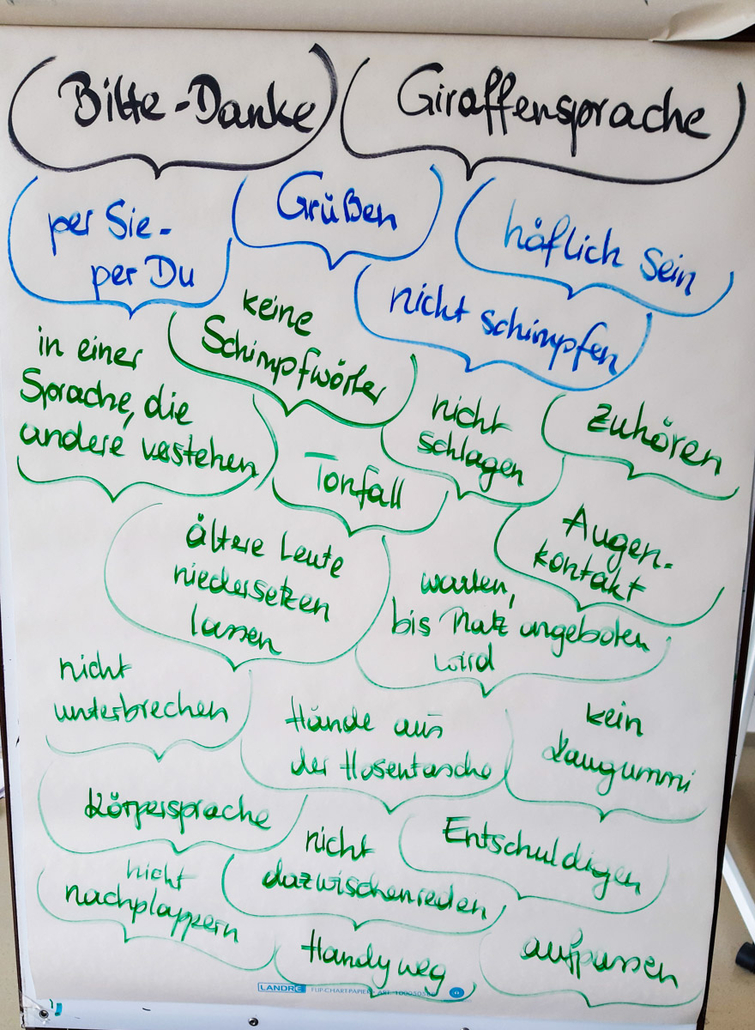 Bitte - Danke
Giraffensprache
per Sie -
per Du
Grüßen
höflich sein
nicht schimpfen
keine
Schimpfwörter
in einer
Sprache, die
andere verstehen
Tonfall
nicht
schlagen
zuhören
Augen-
kontakt
ältere Leute
niedersetzen
lassen
warten,
bis Platz angeboten
wird
nicht
unterbrechen
Hände aus
der Hosentasche
kein
Kaugummi
Körpersprache
nicht
dazwischenreden
Entschuldigen
nicht
nachplappern
Handy weg
aufpassen
LANDRÉ